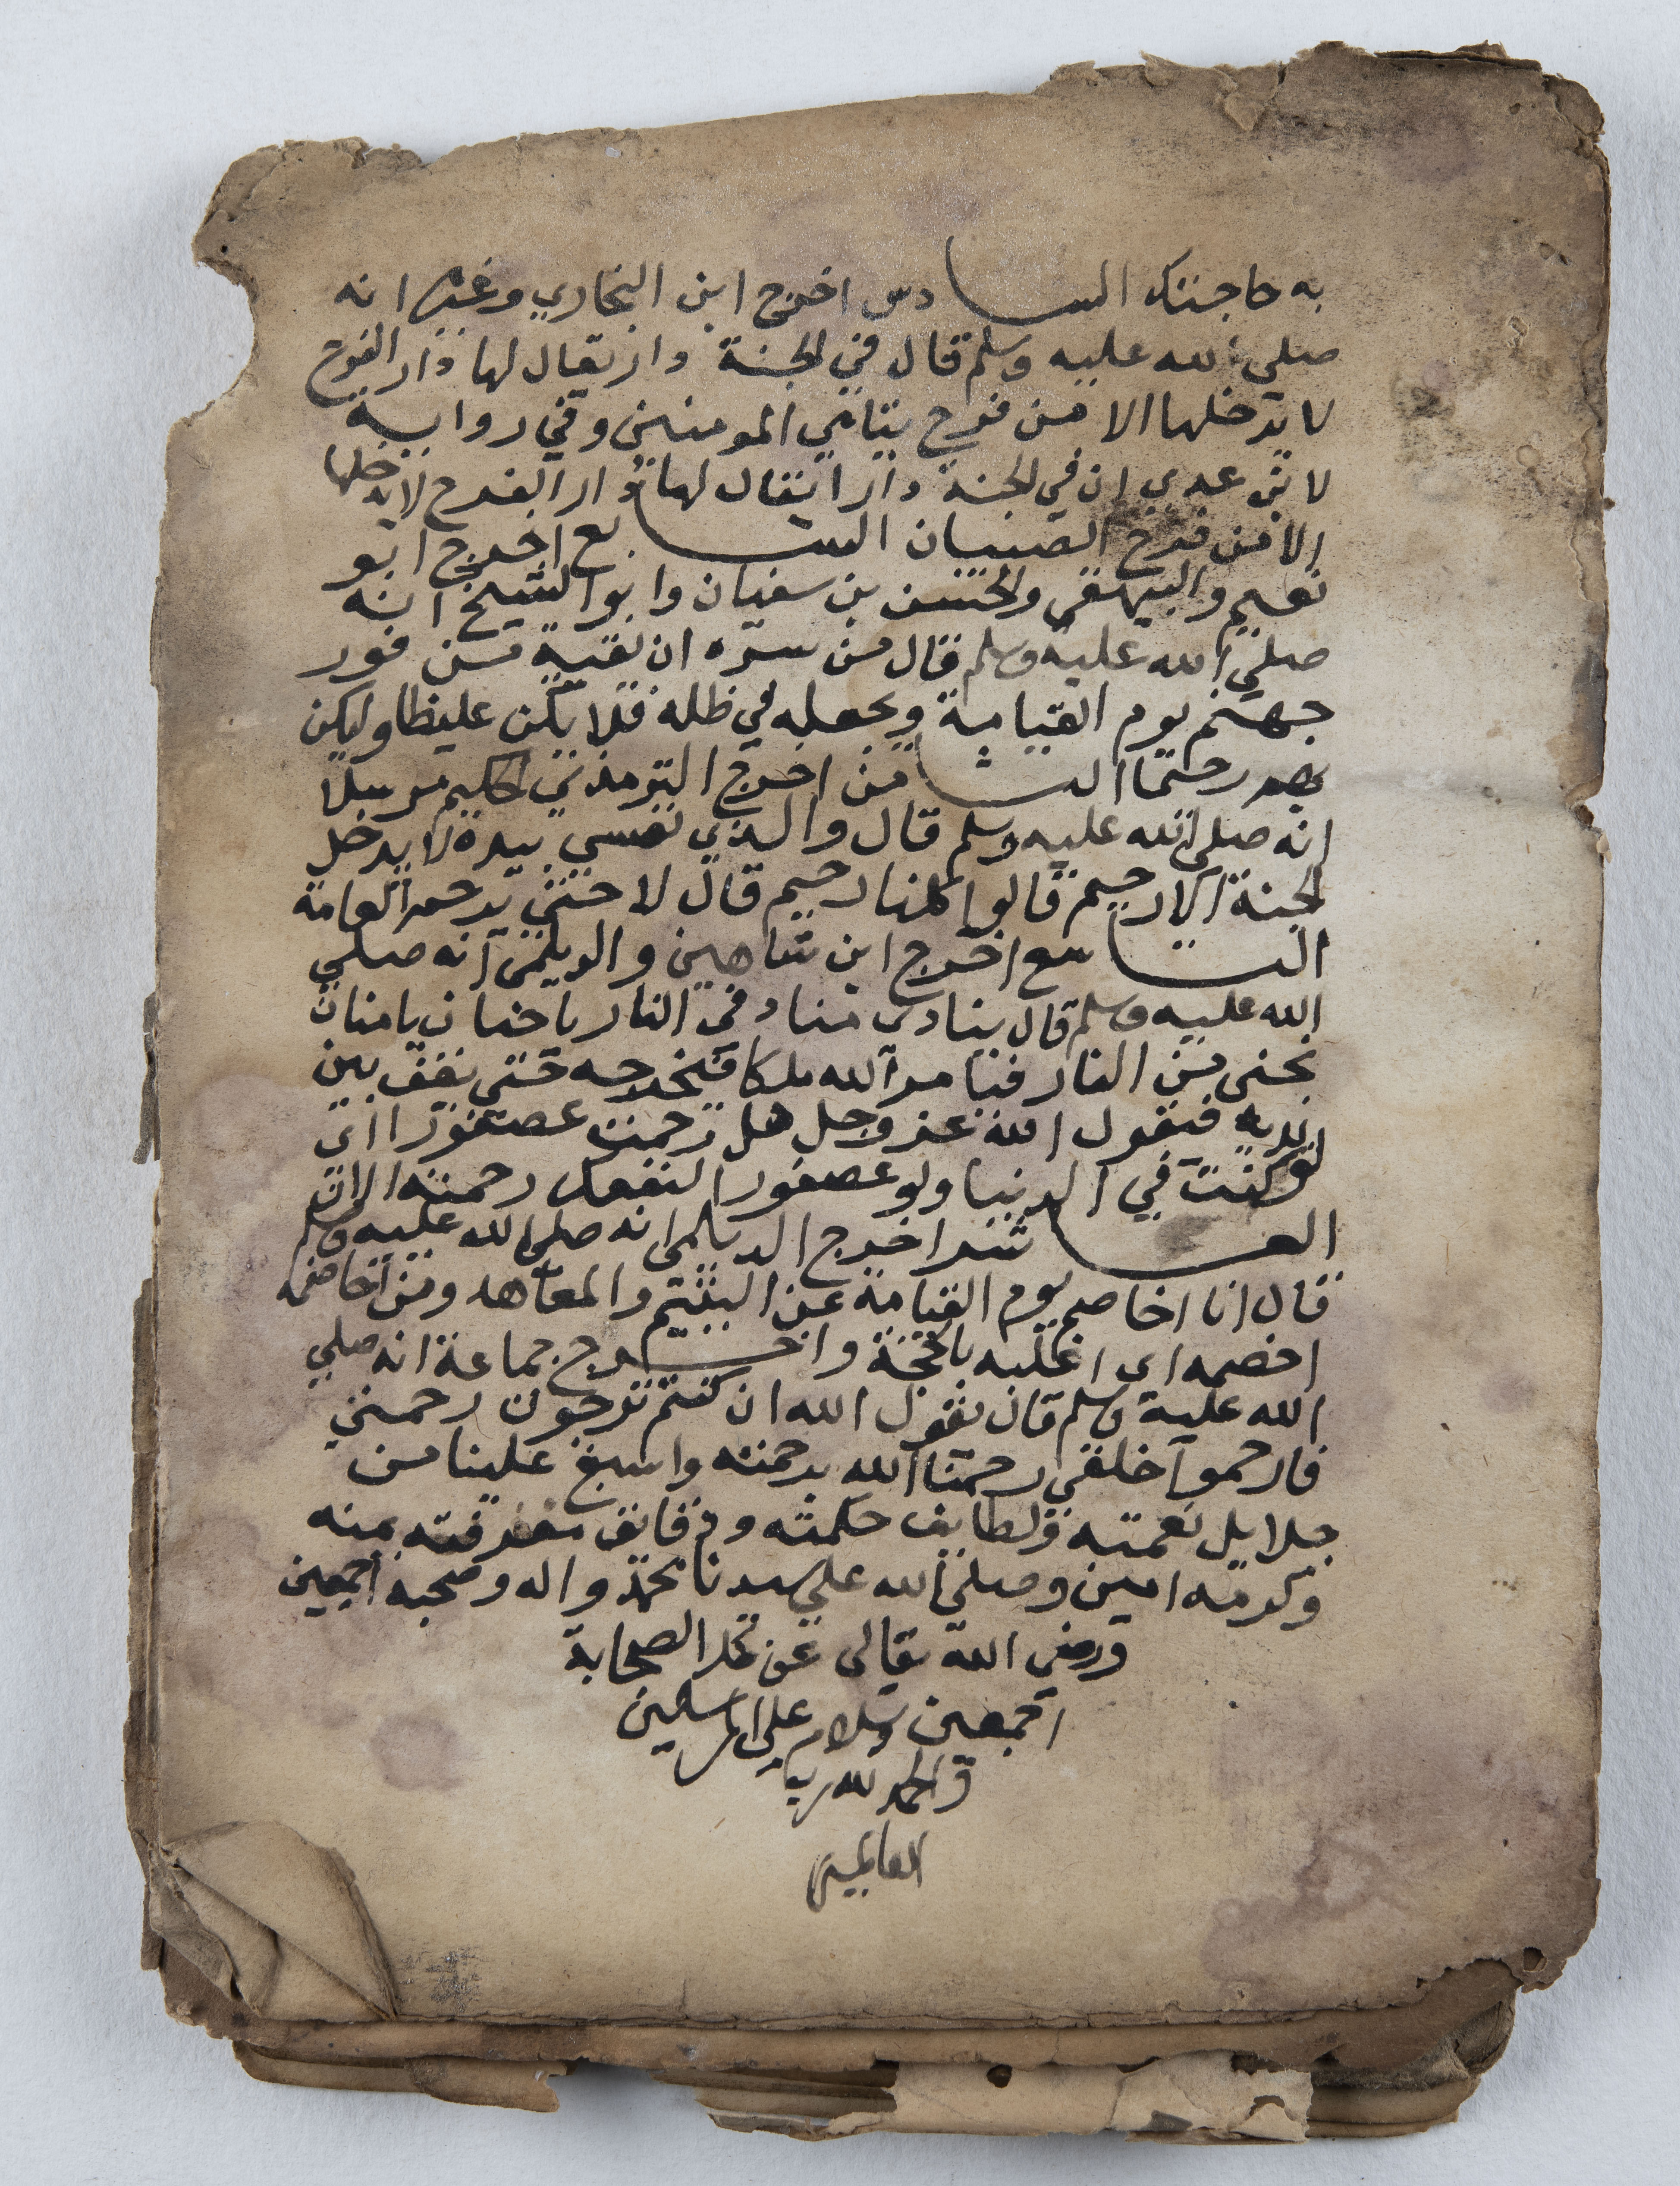 به حاجتك السادس اخرج ابن البخاري وغيره انه
صلي الله عليه وسلم قال في الجنة دار يقال لها دار الفرح
لا يدخلها الا من فرح يتامي المومنين وفي رواية
لابن عدي ان في الجنة دارا يقال لها دار الفرح لا يدخلها
الا من فرح الصبيان السابع اخرج ابو
نعيم والبيهقي والحسن بن سفيان وابو الشيخ انه
صلي الله عليه وسلم قال من سره ان يقيه من فور
جهنم يوم القيامة ويجعله في ظله فلا يكن غليظا وليكن
بهم رحيما الثامن اخرج الترمذي الحكيم مرسلا
انه صلي الله عليه وسلم قال والذي نفسي بيده لا يدخل
الجنة الا رحيم قالوا كلنا رحيم قال لا حتي يرحم العامة
التاسع اخرج ابن شاهين والديلمي انه صلي
الله عليه وسلم قال ينادى مناد في النار يا حنان يا منان
نجني من النار فيامر الله ملكا فيخرجه حتي يقف بين
يديه فيقول الله عز وجل هل رحمت عصفورا اي
لو كنت في الدنيا ولو عصفورا لنفعك رحمته الان
العاشر اخرج الديلمي انه صلي الله عليه وسلم
قال انا اخاصم يوم القيامة عن اليتيم والمعاهد ومن اخاصمه
اخصمه اي اغلبه بالحجة واخرج جماعة انه صلي
الله عليه وسلم قال يقول الله ان كنتم ترجون رحمتي
فارحموا خلقي رحمنا الله برحمته واسبغ علينا من
جلايل نعمته ولطايف حكمته ودقايق معرفته بمنه
وكرمه امين وصلي الله علي سيدنا محمد واله وصحبه اجمعين
ورضي الله تعالى عن كل الصحابة
اجمعين وسلام علي المرسلين
والحمد لله رب
العالمين